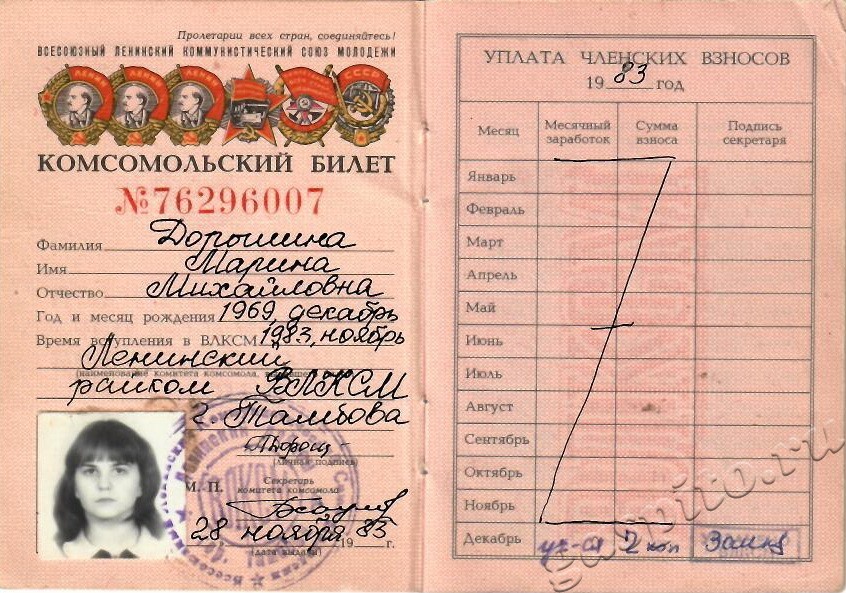 Пролетарии всех стран, соединяйтесь!
ВСЕСОЮЗНЫЙ ЛЕНИНСКИЙ КОММУНИСТИЧЕСКИЙ СОЮЗ МОЛОДЕЖИ
ЛЕНИН ЛЕНИН ЛЕНИН СССР
КОМСОМОЛЬСКИЙ БИЛЕТ
№76296007
Фамилия Дорошина
Имя Марина
Отчество Михайловна
Год и месяц рождения 1969, декабрь
Время вступления в ВЛКСМ 1983, ноябрь
Ленинский
(наименование комитета комсомола,
райком ВЛКСМ
г. Тамбова
(личная подпись)
М. П. Секретарь
комитета комсомола
28 ноября 1983 г.
(дата выдачи)
УПЛАТА ЧЛЕНСКИХ ВЗНОСОВ
1983 год
Месяц Месячный заработок Сумма взноса Подпись секретаря
Январь
Февраль
Март
Апрель
Май
Июнь
Июль
Август
Сентябрь
Октябрь
Ноябрь
Декабрь уч-ся 2 коп